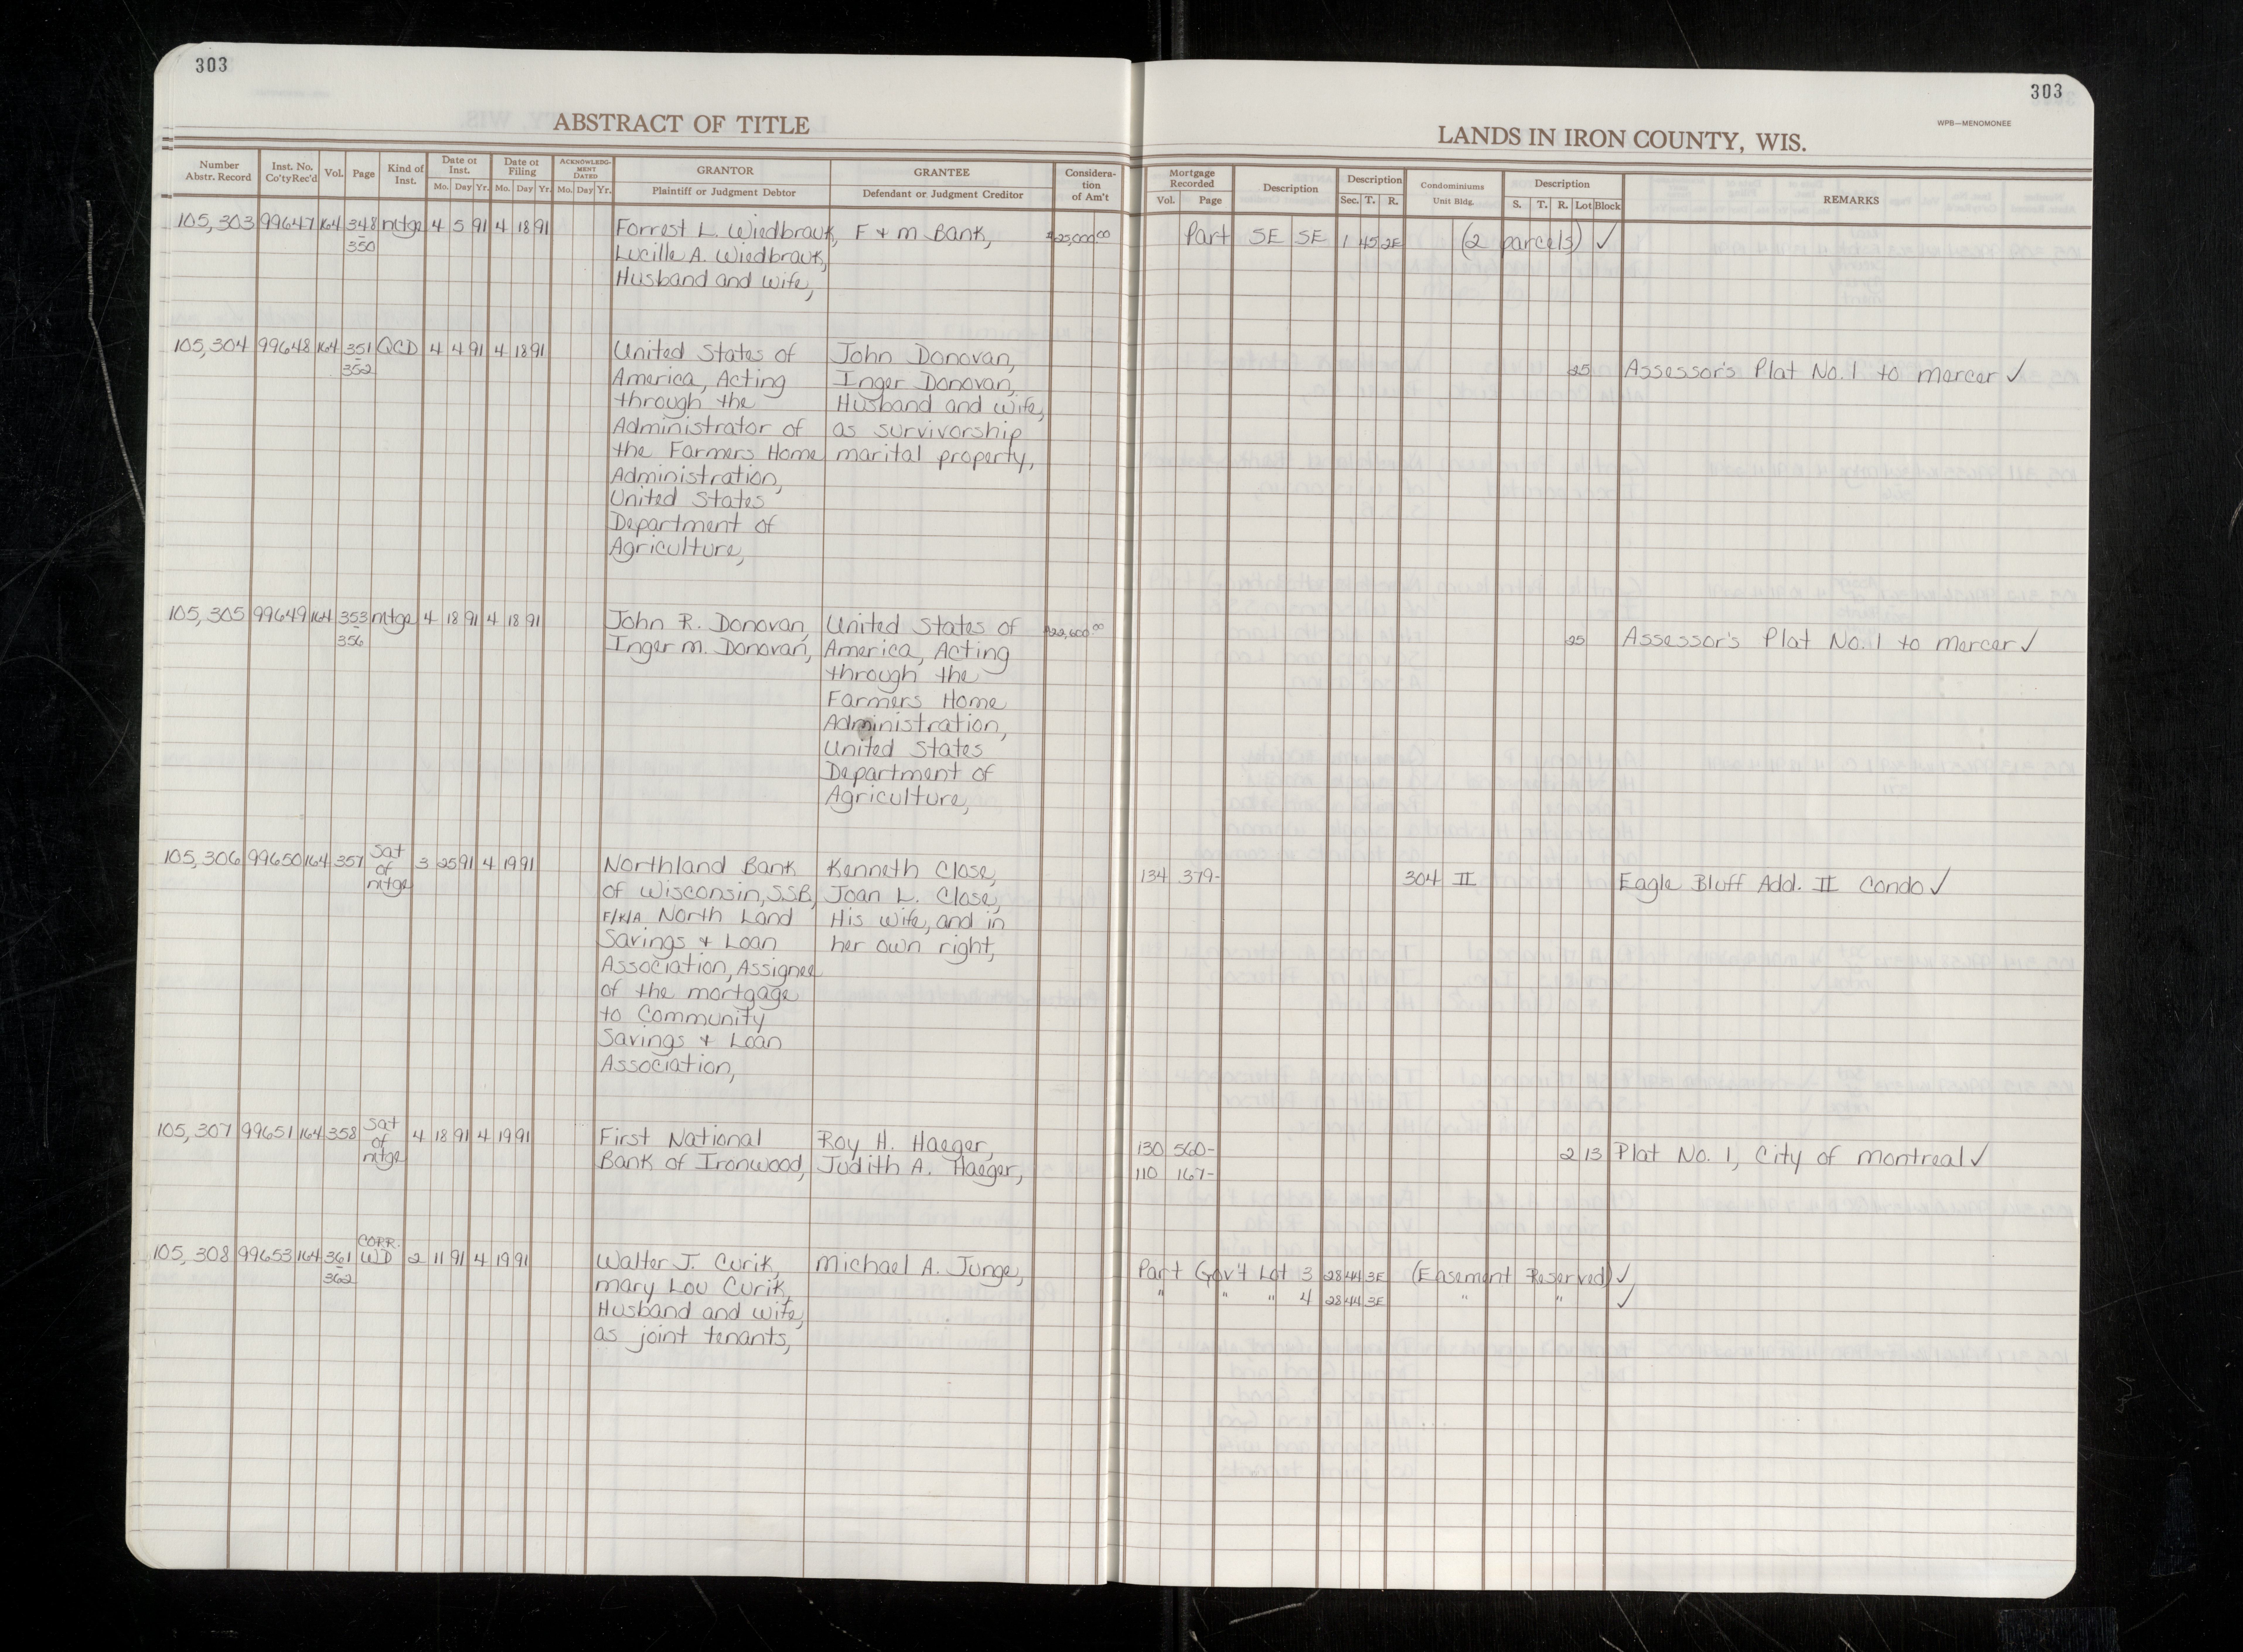 303
ABSTRACT OF TITLE
Number Abstr. Record | Inst. No. Co'ty Rec'd | Vol. | Page | Kind of Inst. | Date of Inst. Mo. Day Yr. | Date of Filing Mo. Day Yr. | ACKNOWLEDGMENT DATED Mo. Day Yr. | GRANTOR Plaintiff or Judgment Debtor | GRANTEE Defendant or Judgment Creditor | Consideration of Am't
105,303 99647 164 348 mtge 4 5 91 4 18 91 Forrest L. Wiedbrauk, F + M Bank, $25,000.00
350 Lucille A. Wiedbrauk,
Husband and Wife,
105,304 99648 164 351 QCD 4 4 91 4 18 91 United States of John Donovan,
352 America, Acting Inger Donovan,
through the Husband and Wife,
Administrator of as survivorship
the Farmers Home marital property,
Administration,
United States
Department of
Agriculture,
105,305 99649 164 353 mtge 4 18 91 4 18 91 John R. Donovan, United States of $22,600.00
356 Inger M. Donovan, America, Acting
through the
Farmers Home
Administration,
United States
Department of
Agriculture,
105,306 99650 164 357 Sat of mtge 3 25 91 4 19 91 Northland Bank Kenneth Close,
of Wisconsin, SSB, Joan L. Close,
F/K/A North Land His Wife, and in
Savings + Loan her own right,
Association, Assignee
of the mortgage
to Community
Savings + Loan
Association,
105,307 99651 164 358 Sat of mtge 4 18 91 4 19 91 First National Roy H. Haeger,
Bank of Ironwood, Judith A. Haeger,
105,308 99653 164 361 CORR. WD 2 11 91 4 19 91 Walter J. Curik, Michael A. Junge,
362 Mary Lou Curik,
Husband and Wife,
as joint tenants,
303
WPB—MENOMONEE
LANDS IN IRON COUNTY, WIS.
Mortgage Recorded Vol. Page | Description | Description Sec. T. R. | Condominiums Unit Bldg. | Description S. T. R. Lot Block | REMARKS
Part SE SE 1 45 2E (2 parcels) ✓
25 Assessor's Plat No. 1 to Mercer ✓
25 Assessor's Plat No. 1 to Mercer ✓
134 379- 304 II Eagle Bluff Add. II Condo ✓
130 560- 2 13 Plat No. 1, City of Montreal ✓
110 167-
Part Gov't Lot 3 28 44 3E (Easement Reserved) ✓
" " " 4 28 44 3E " " ✓